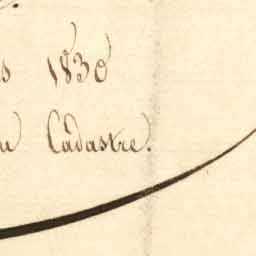 s 1830
u Cadastre.